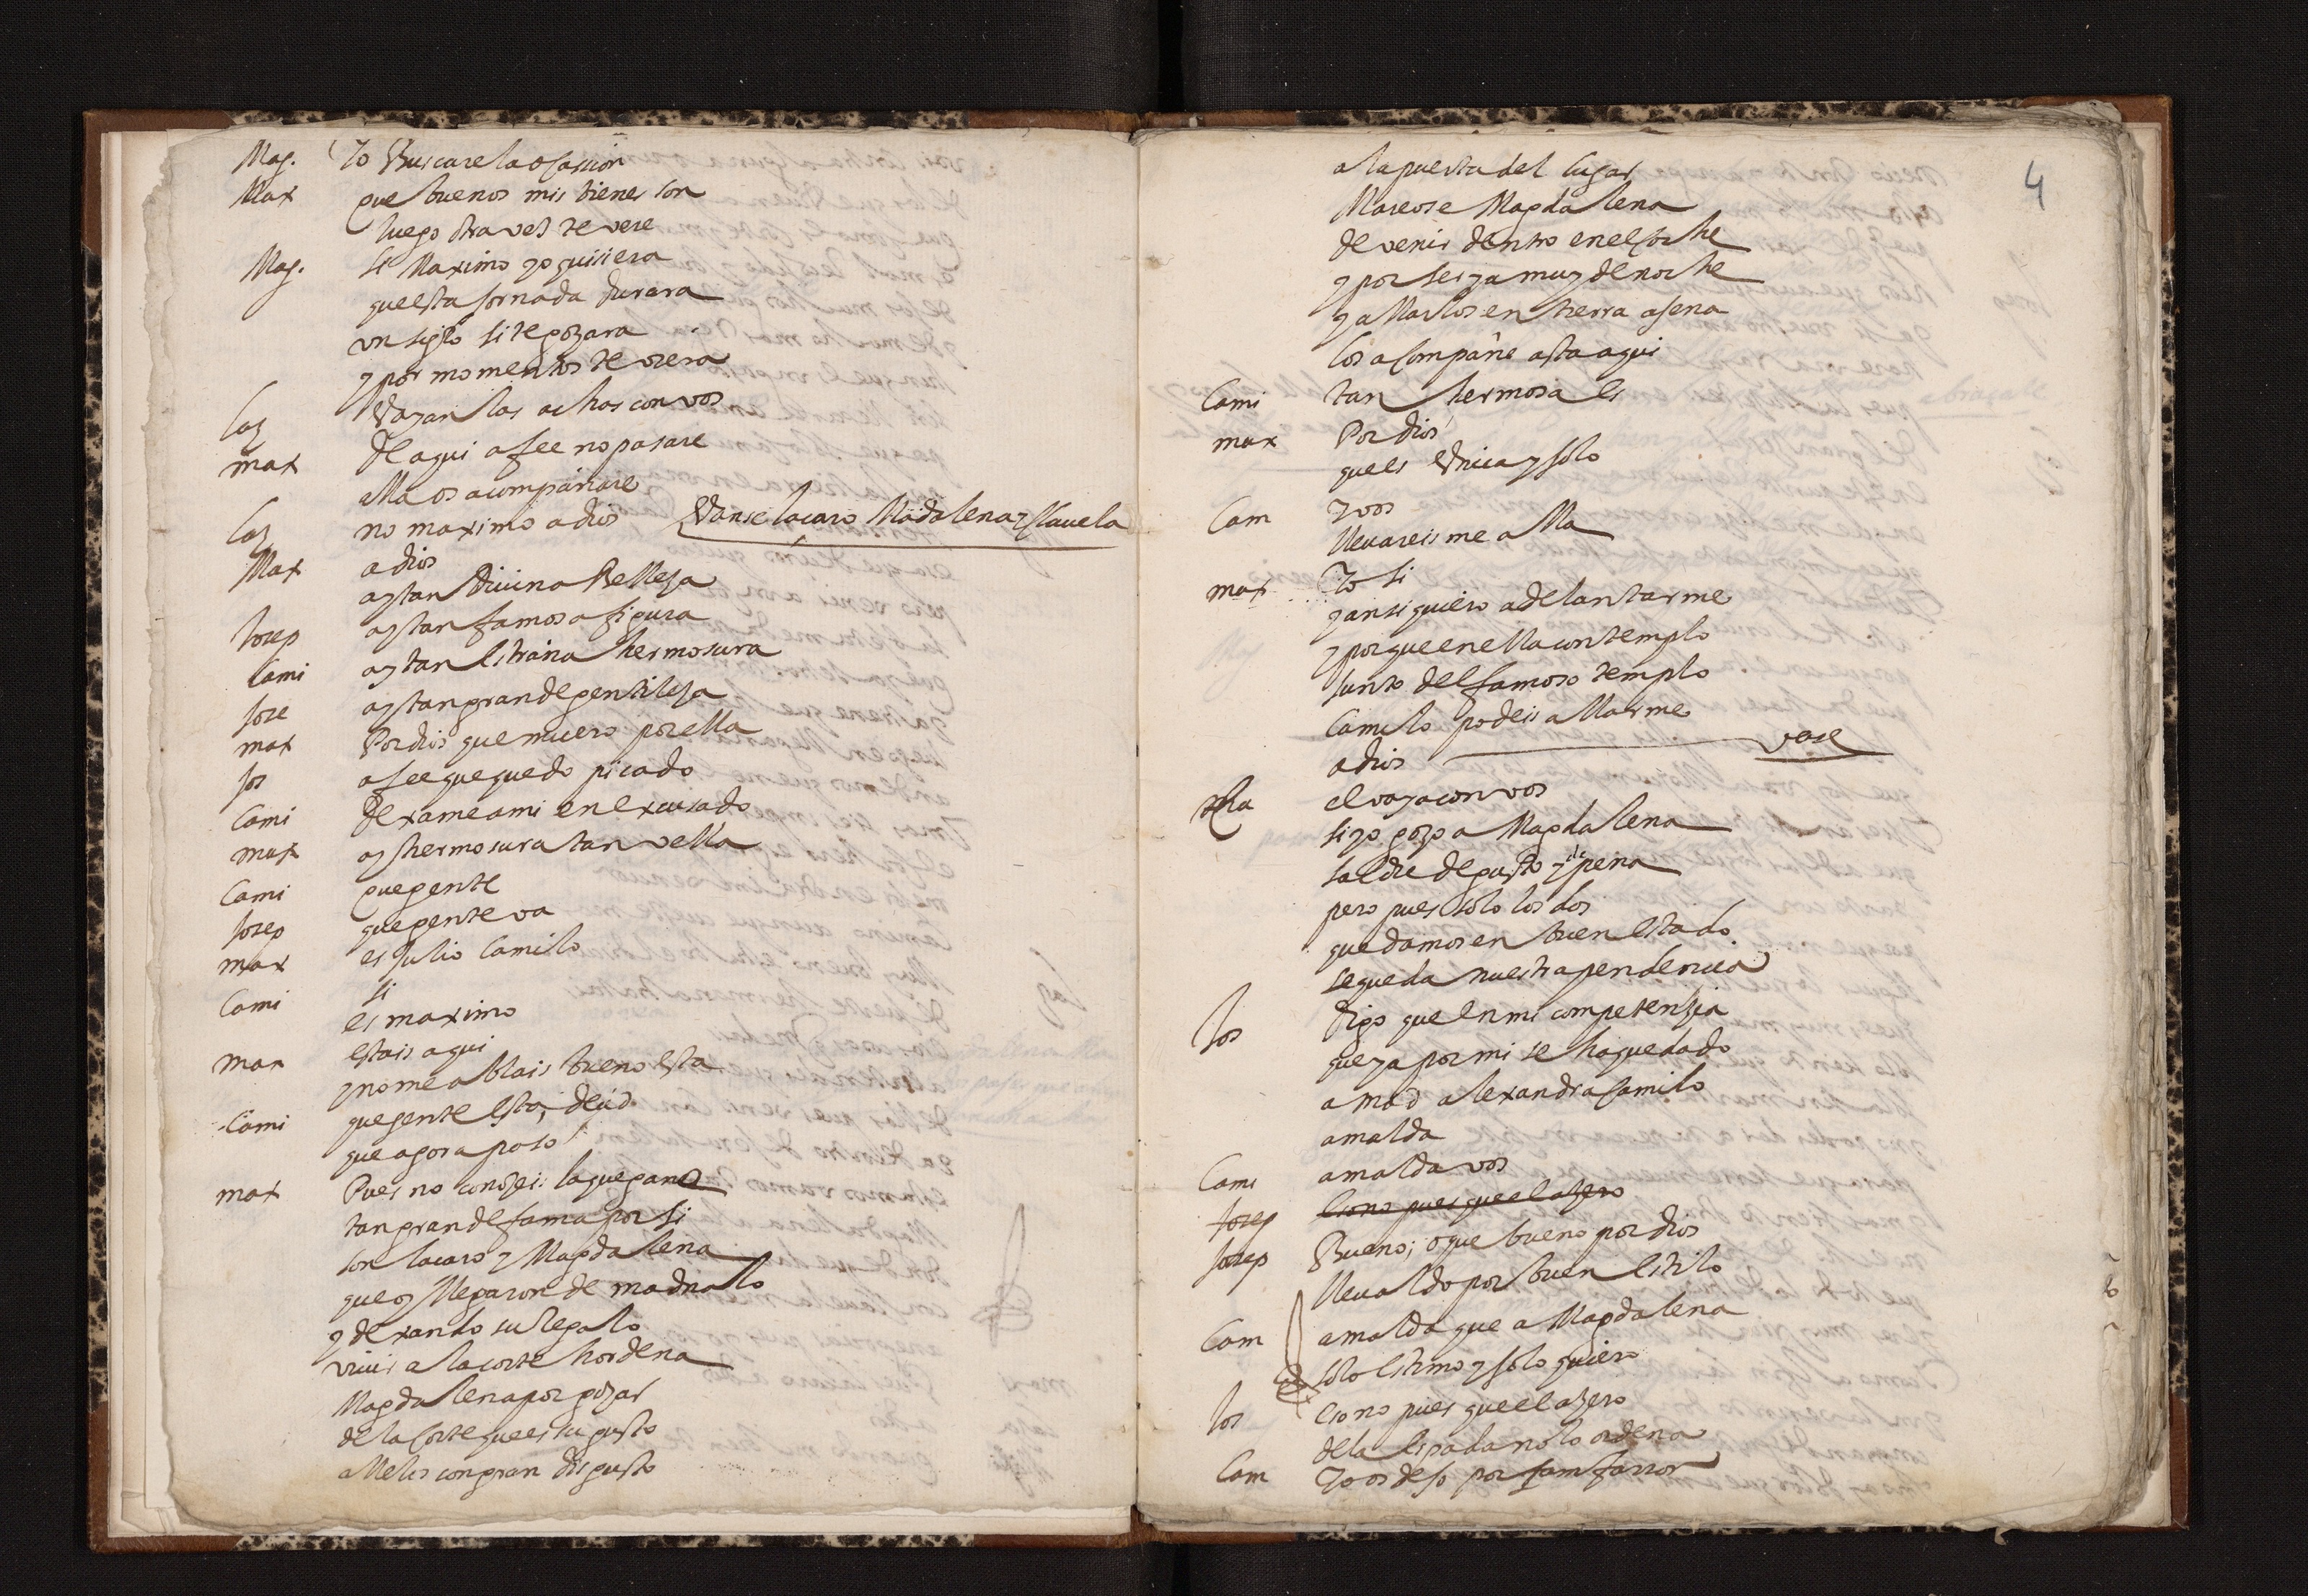 Mag. Yo Buscare la ocassion
Max que buenos mis bienes son
luego otra vez te vere
Mag. si Maximo yo quisiera
questa jornada durara
un siglo si te gozara
y por momentos te viera
Laz Vayan las achas con vos
max de aqui a fee no pasare
alla os acompañare
Laz no maximo a dios Vanse lacaro Madalena y Clauela
Max a dios
ay tan diuina Belleza
Josep ay tan famosa figura
Cami ay tan estraña hermosura
Jose ay tan grande gentileza
max Por dios que muero por ella
Jos a fee que quedo picado
Cami dexame a mi enexcusado
max ay hermosura tan vella
Cami que gente
Josep que gente va
max es Julio Camilo
Cami si
es maximo
max estais aqui
y no me ablais bueno esta
Cami que jente esta, decid
que agora paso
max Pues no conozeis la que gano
tan grande fama por si
son lacaro y Magdalena
que oy llegaron de madrialo
y dexando su regalo
viuir a la corte hordena
Magdalena por gozar
de la corte que es su gusto
allelos con gran disgusto
4
a la puerta del lugar
Mareose Magdalena
de venir dentro en el coche
y por ser ya muy de noche
y allarlos en tierra ajena
los acompañe asta aqui
Cami tan hermosa es
max Por dios
que es Vnica y solo
Cam Y vos
lleuareisme alla
max Yo si
y ansi quiero adelantarme
y porque en ella contemplo
junto del famoso templo
Camilo podeis allarme
a dios vase
el vaya con vos
si yo gozo a Magdalena
saldre de gusto y de pena
pero pues solo los dos
quedamos en buen estado
se queda nuestra pendencia
Jos digo que en mi competenzia
que ya por mi se ha quedado
amad a lexandra Camilo
amalda
Cami amalda vos
Josep Eso no pues que el azero
Josep Bueno, o que bueno por dios
lleualdo por buen estilo
Cam amalda que a Magdalena
solo estimo y solo quiero
Jos Eso no pues que el azero
de la espada no lo ordena
Cam Yo os dejo por fanfarron